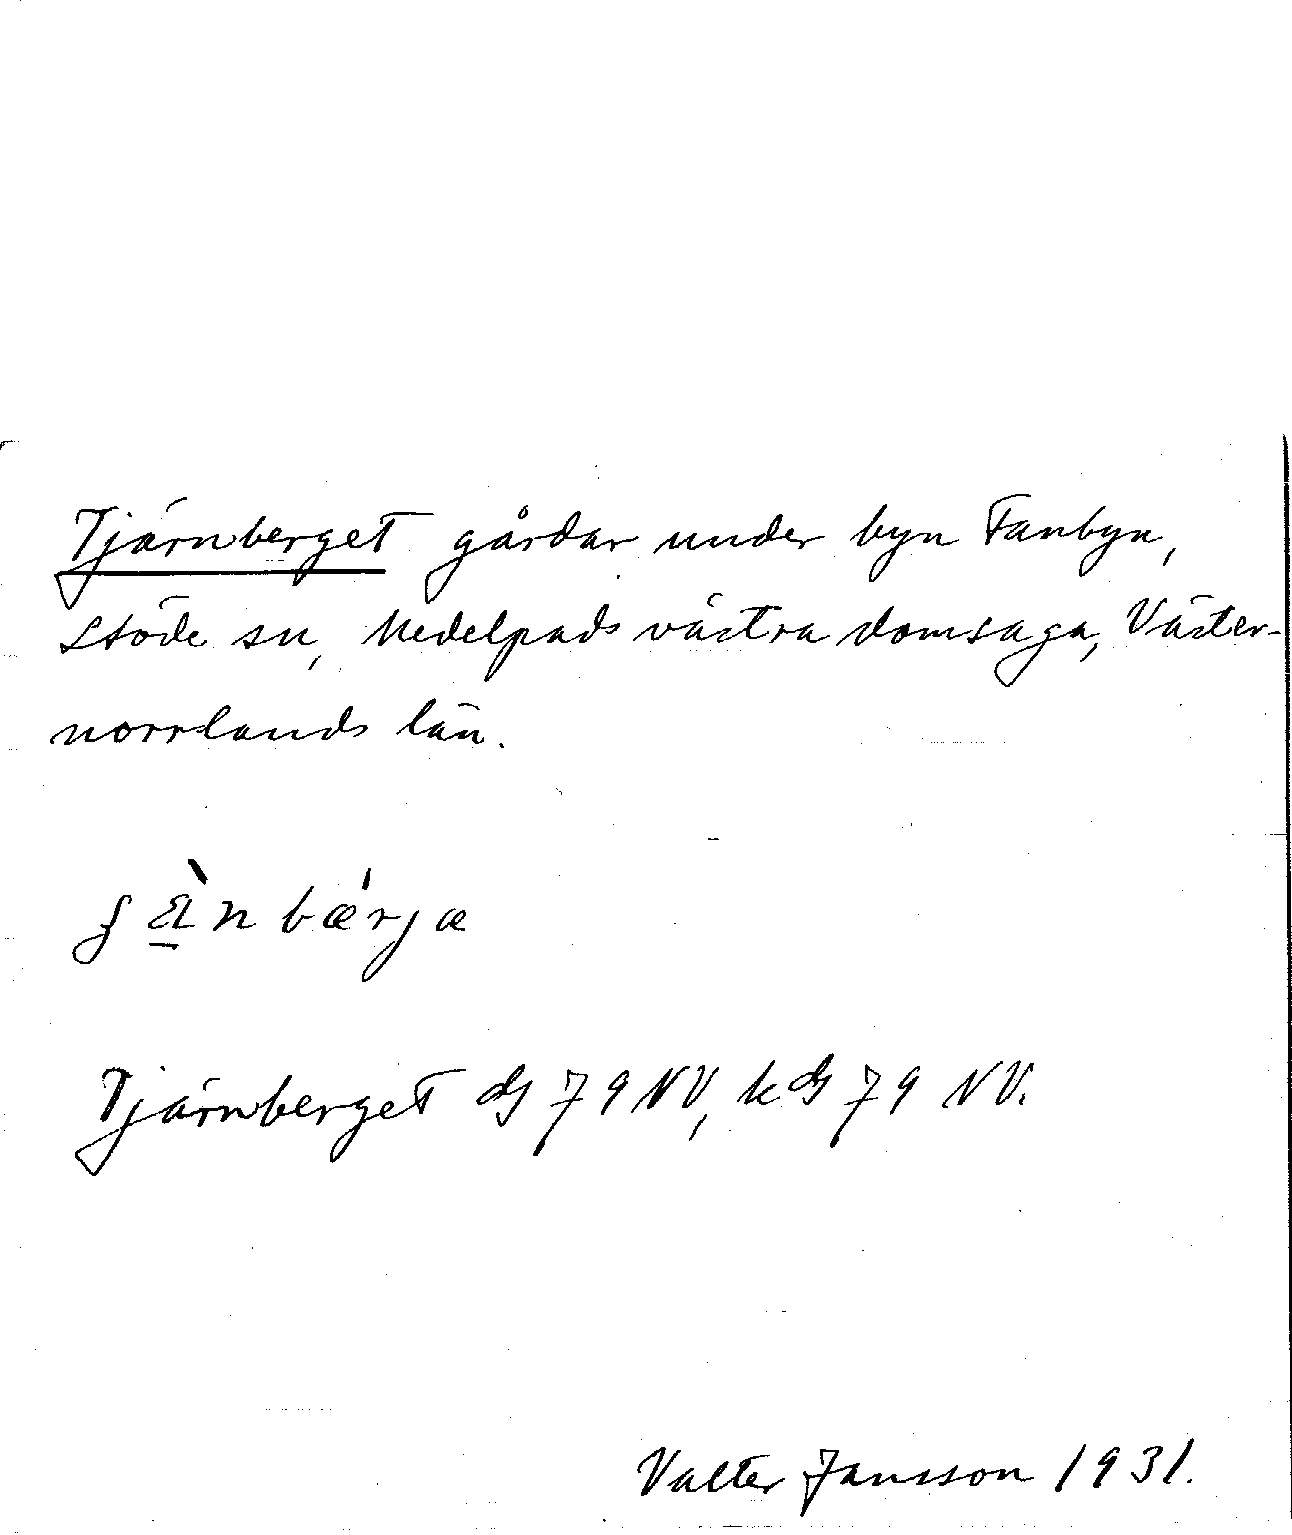 Tjärnberget gårdar under byn Fanbyn,
Stöde sn, Medelpads västra domsaga, Väster-
norrlands län.
bærja
Tjärnberget ds 79 NV, kds 79 NV.
Valter Jansson 1931.